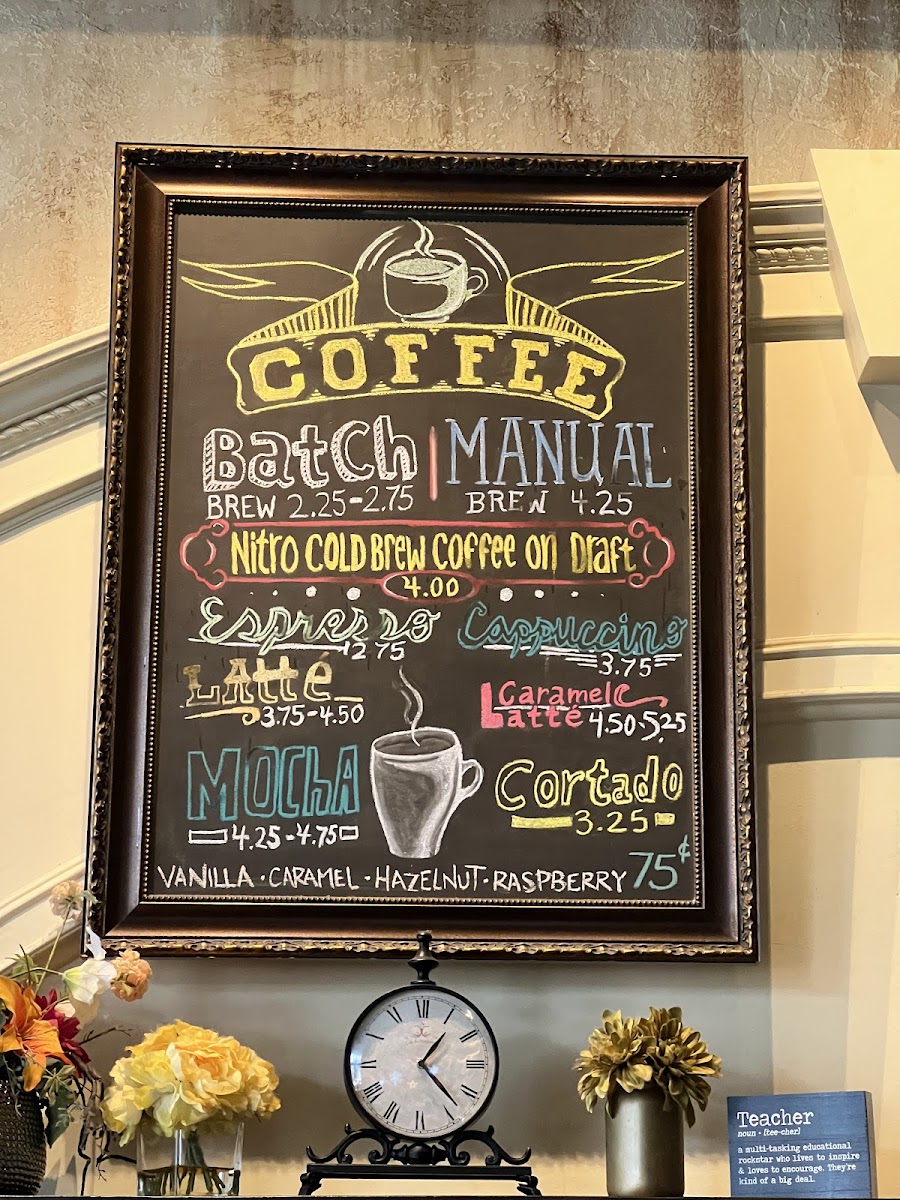 COFFEE
Batch | MANUAL
BREW 2.25-2.75 BREW 4.25
Nitro COLD Brew Coffee on Draft
4.00
Espresso Cappuccino
2.75 3.75
LAtté Caramel
3.75-4.50 Latté 4.50-5.25
MOChA Cortado
4.25-4.75 3.25
VANILLA · CARAMEL · HAZELNUT · RASPBERRY 75¢
XII
I
II
III
IIII
V
VI
VII
VIII
IX
X
XI
Teacher
noun • [tee-cher]
a multi-tasking educational
rockstar who lives to inspire
& loves to encourage. They're
kind of a big deal.